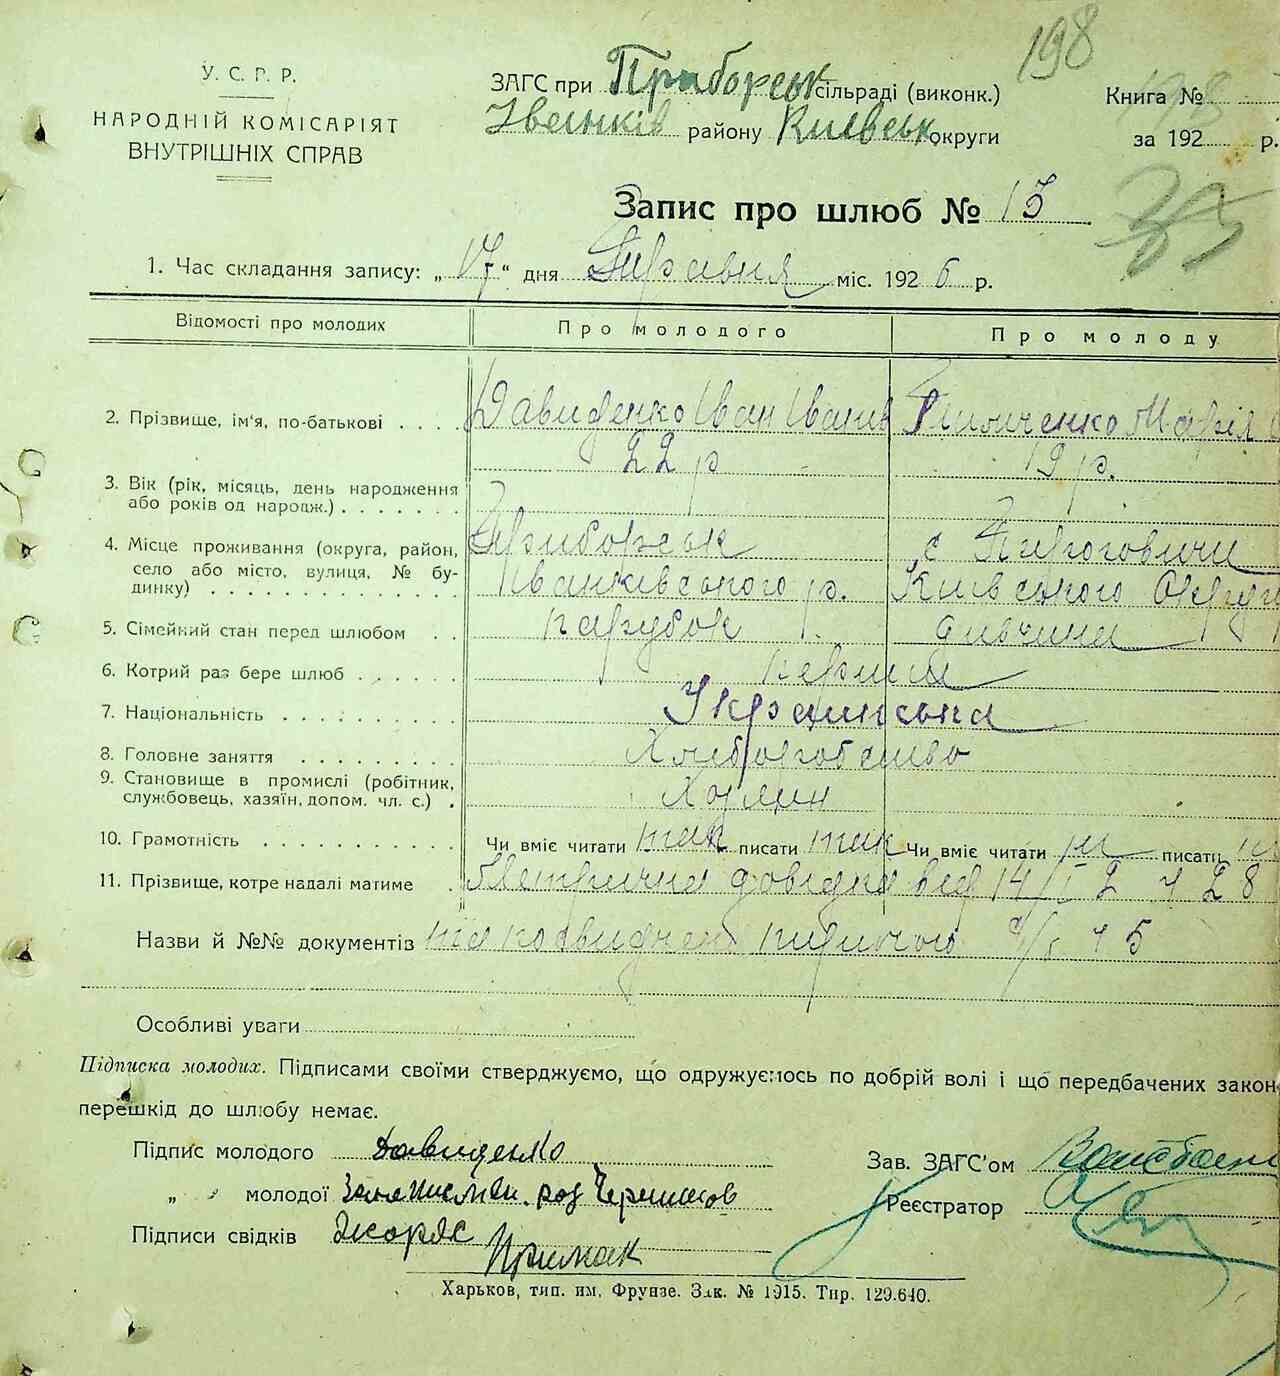 198
У. С. Р. Р.
НАРОДНІЙ КОМІСАРІЯТ
ВНУТРІШНІХ СПРАВ
ЗАГС при Приборськ сільраді (виконк.)
Іванків району Київськ округи
Книга № 198
за 192 р.
Запис про шлюб № 13
35
1. Час складання запису: „17“ дня Травня міс. 1926 р.
Відомості про молодих
Про молодого
Про молоду
2. Прізвище, ім'я, по-батькові . . . .
Давиденко Іван Іванів
Тимченко Марія
22 р
19 р.
3. Вік (рік, місяць, день народження
або років од народж.) . . . . . . .
4. Місце проживання (округа, район,
село або місто, вулиця, № бу-
динку) . . . . . . . . . . . . . .
Приборськ
Іванківського р.
с Пироговичи
Київського Округу
5. Сімейний стан перед шлюбом . .
парубок
дивчина
6. Котрий раз бере шлюб . . . . . .
перший
7. Національність . . . . . . . . . .
Українська
8. Головне заняття . . . . . . . . .
Хлиборобство
9. Становище в промислі (робітник,
службовець, хазяїн, допом. чл. с.) .
Хазяин
10. Грамотність . . . . . . . . . . .
Чи вміє читати так писати так Чи вміє читати ні писати ні
11. Прізвище, котре надалі матиме .
Метрична довідка від 14/
Назви й №№ документів
Особливі уваги
Підписка молодих. Підписами своїми стверджуємо, що одружуємось по добрій волі і що передбачених закон
перешкід до шлюбу немає.
Підпис молодого Давиденко
„ „ молодої
Підписи свідків
Примак
Зав. ЗАГС'ом
Реєстратор
Харьков, тип. им. Фрунзе. Зак. № 1915. Тир. 129.640.